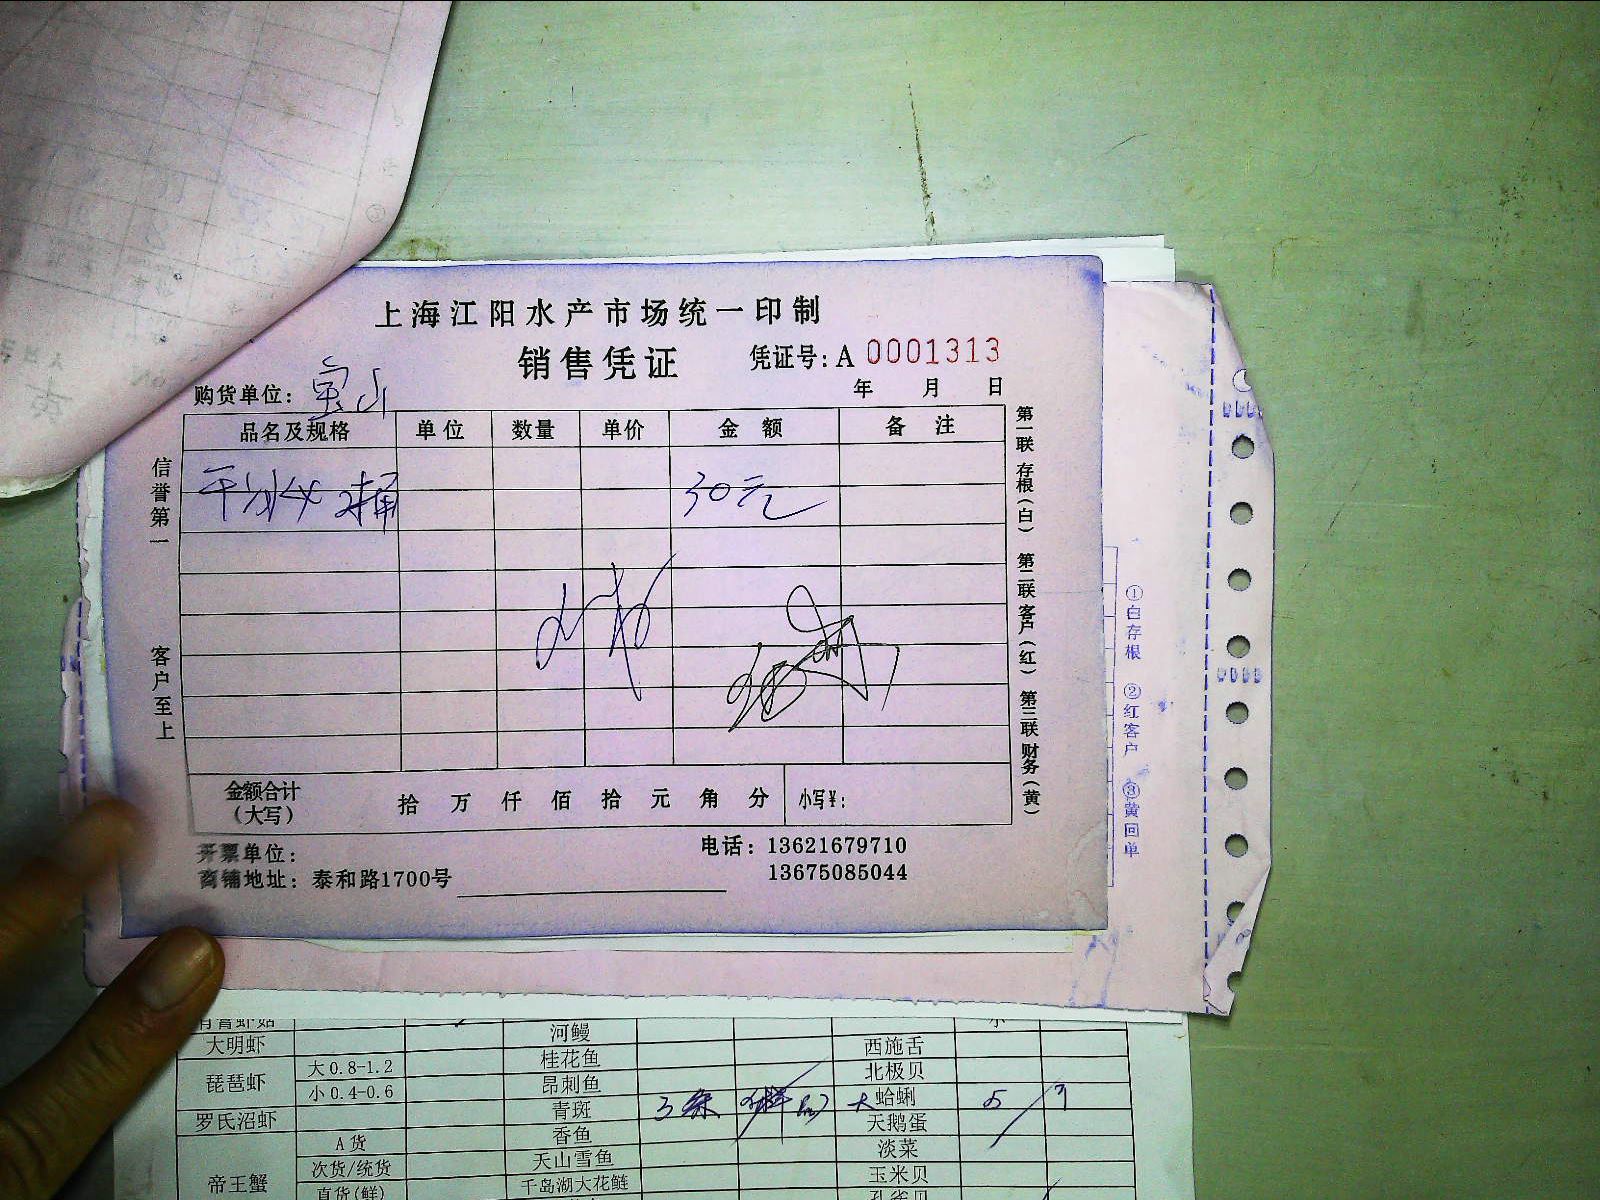 上海江阳水产市场统一印制
销售凭证 凭证号: A 0001313
购货单位: 宝山 年 月 日
品名及规格 单位 数量 单价 金额 备注
干冰 2桶 30元
信誉第一
客户至上
第一联 存根(白) 第二联 客户(红) 第三联 财务(黄)
金额合计 (大写) 拾 万 仟 佰 拾 元 角 分 小写¥:
开票单位: 电话: 13621679710
商铺地址: 泰和路1700号 13675085044
①白存根 ②红客户 ③黄回单
河鳗
大明虾 西施舌
琵琶虾 大0.8-1.2 桂花鱼 北极贝
小0.4-0.6 昂刺鱼 大 蛤蜊 5
罗氏沼虾 青斑 3条 天鹅蛋
帝王蟹 A货 香鱼 淡菜
次货/统货 天山雪鱼 玉米贝
直货(鲜) 千岛湖大花鲢 孔雀贝